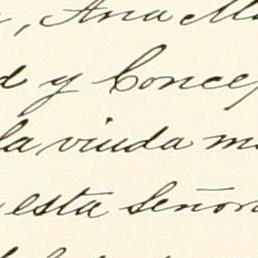 , Ana Ma
d y Concep
la viuda m
esta señor